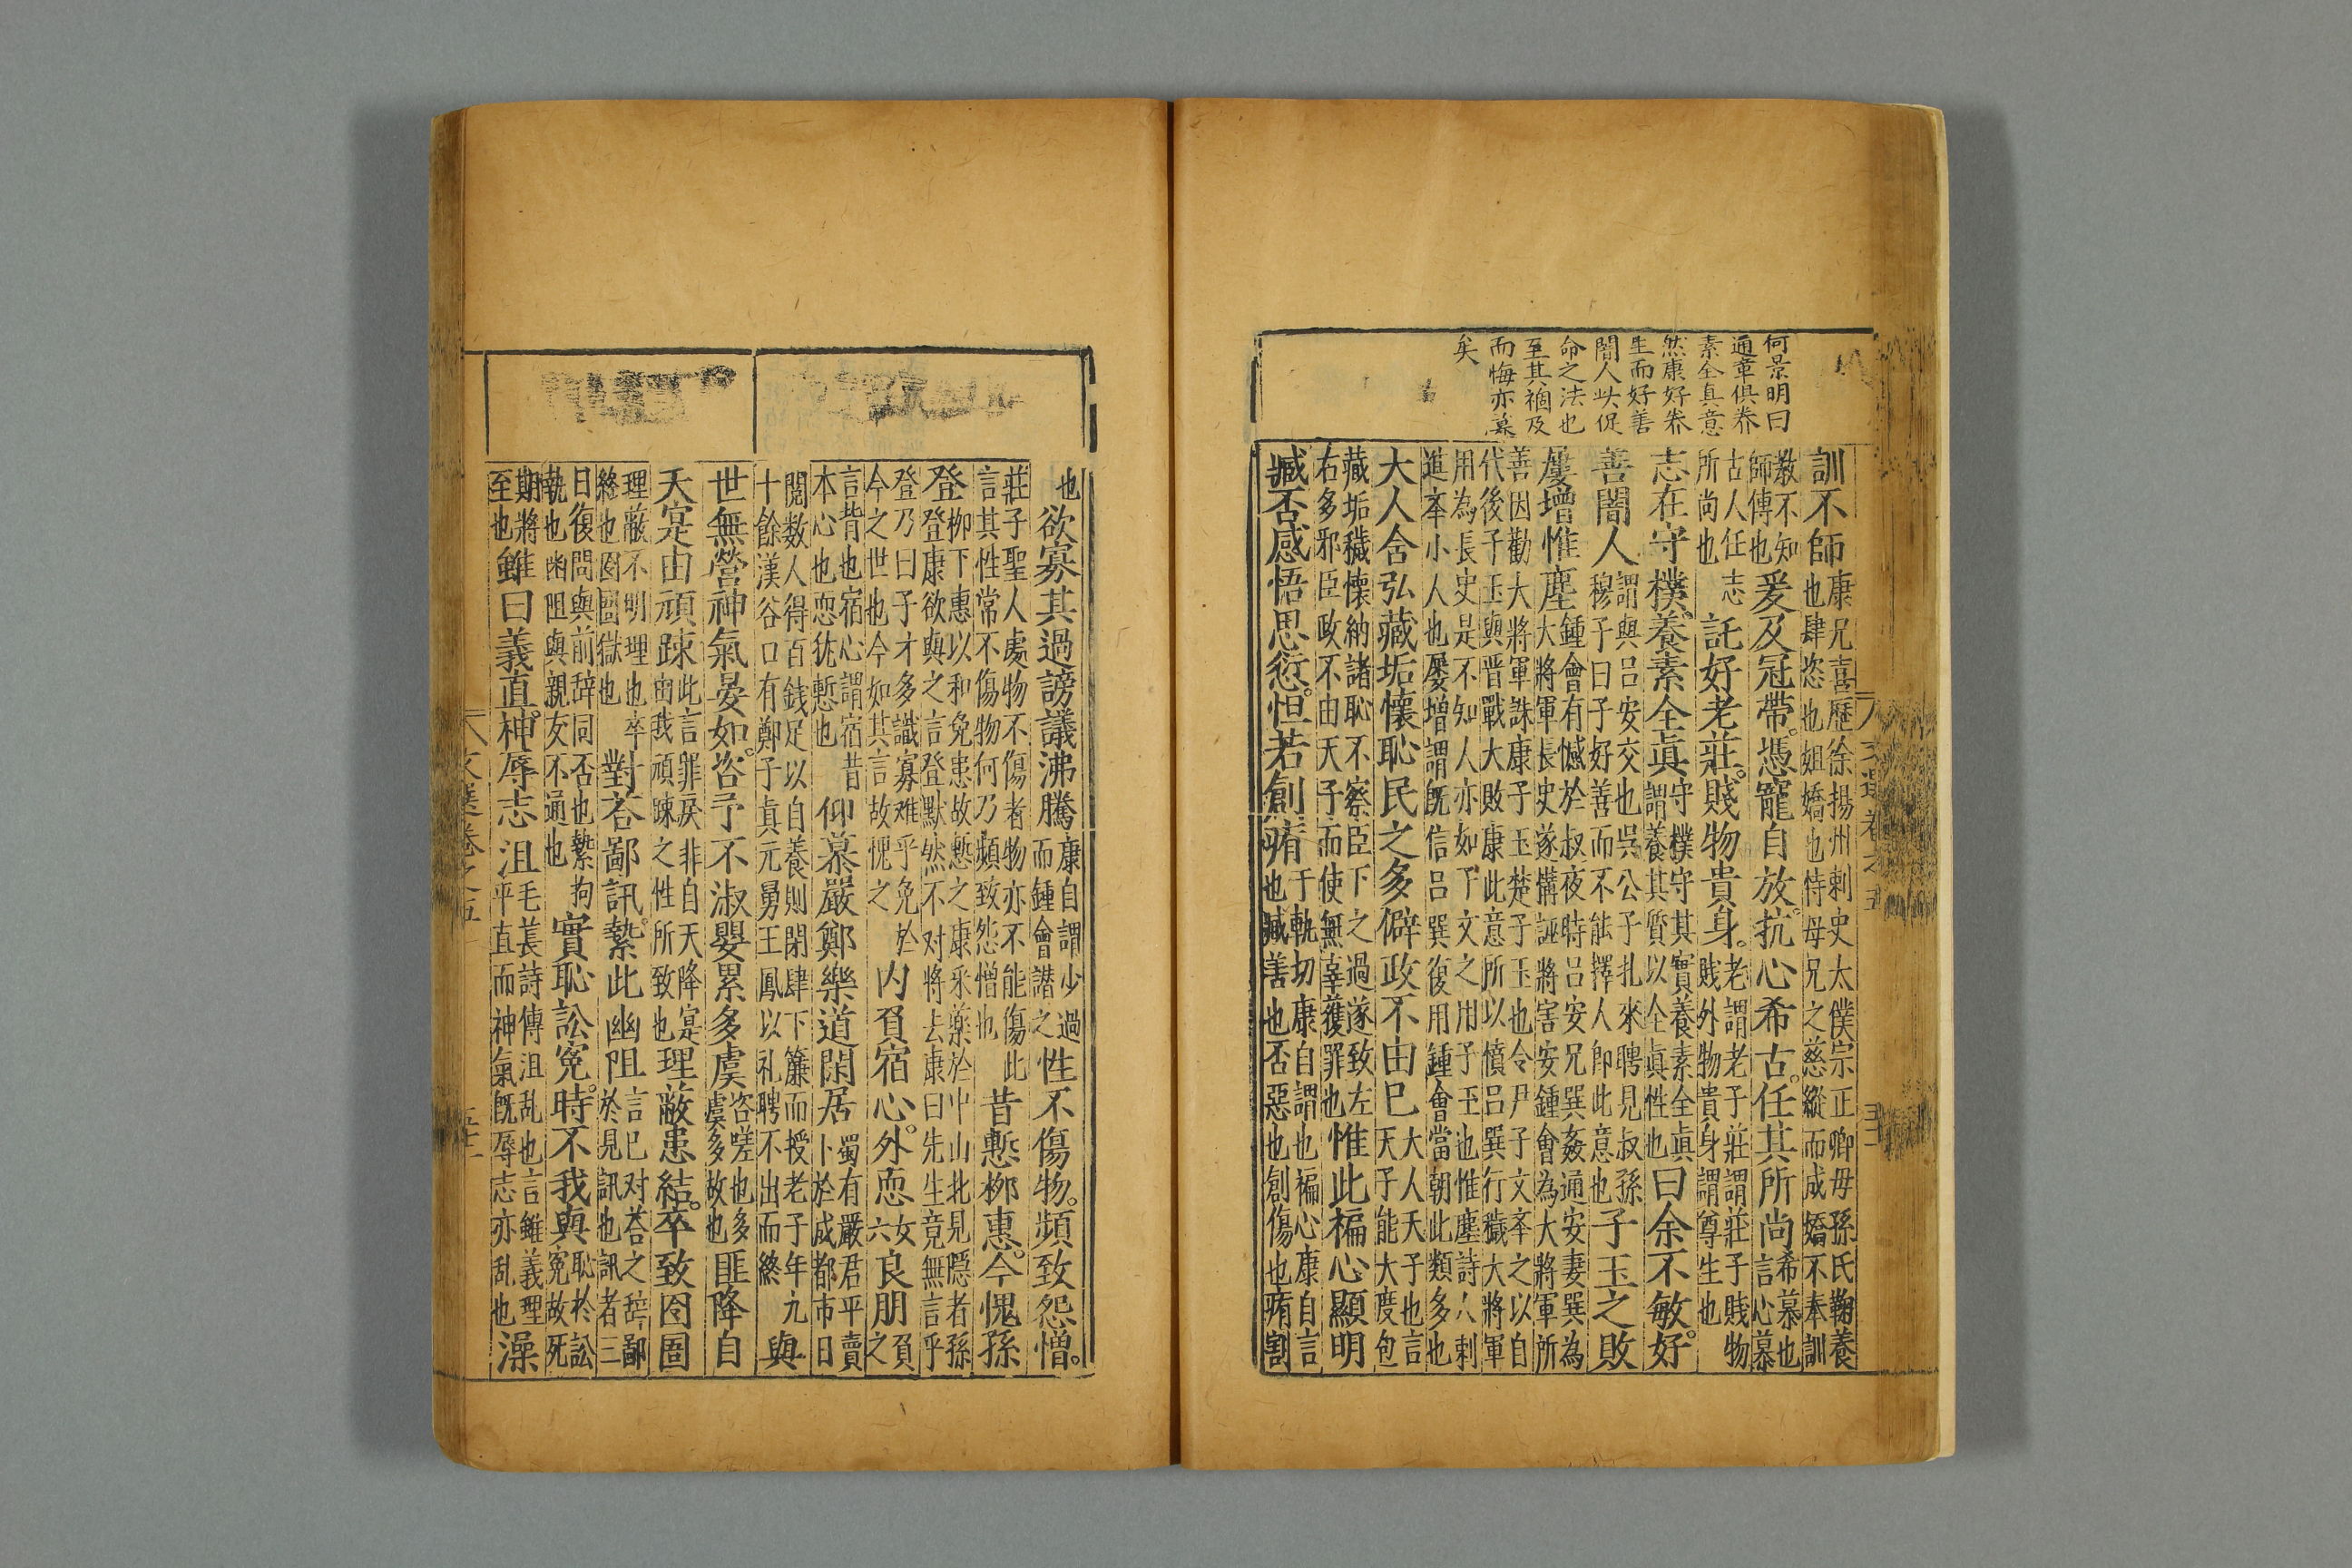 何景明曰
通章俱養
素全真意
然康好養
生而好善
闇人此促
命之法也
至其禍及
而悔亦莫
矣
訓不師康兄喜歷徐揚州刺史太僕宗正卿母孫氏鞠養也肆恣也姐嬌也恃母兄之慈縱而成嬌不奉訓
教不知師傳也爰及冠帶。憑寵自放。抗心希古。任其所尚希慕也言心慕
古人任志所尚也託好老莊。賤物貴身。老謂老子莊謂莊子賤物賤外物貴身謂尊生也
志在守樸。養素全眞守樸守其實養素全眞謂養其質以全眞性也曰余不敏。好
善闇人謂與呂安交也吳公子扎來聘見叔孫穆子曰子好善而不能擇人即此意也子玉之敗
屢增惟塵鍾會有憾於叔夜時呂安兄巽姦通安妻巽為大將軍長史遂搆誣將害安鍾會為大將軍所
善因勸大將軍誅康子玉楚子玉也令尹子文卒之以自代後子玉與晋戰大敗康此意所以憤呂巽行穢大將軍
用為長史是不知人亦如下文之用子玉也惟塵詩人刺進卒小人也屡增謂既信呂巽復用鍾會當朝此類多也
大人含弘藏垢懷恥民之多僻政不由已大人天子也言天子能大度包
藏垢穢懷納諸恥不察臣下之過遂致左右多邪臣政不由天子而使無辜獲罪也惟此褊心顯明
臧否感悟思愆。怛若創痏于軌切康自謂也褊心康自言也臧善也否惡也創傷也痏割
文選卷之五
也欲寡其過謗議沸騰康自謂少過而鍾會譖之性不傷物。頻致怨憎。
莊子聖人處物不傷者物亦不能傷此言其性常不傷物何乃頻致怨憎也昔慙柳惠。今愧孫
登柳下惠以和免患故慙之康采藥於中山北見隱者孫登康欲與之言登默然不对將去康曰先生竟無言乎
登乃曰子才多識寡难乎免於今之世也今如其言故愧之内負宿心。外恧女六良朋負之
言背也宿心謂宿昔本心也恧犹慙也仰慕嚴鄭樂道閑居蜀有嚴君平賣卜於成都市日
閱数人得百錢足以自養則閉肆下簾而授老子年九十餘漢谷口有鄭子真元舅王鳳以礼聘不出而終與
世無營神氣晏如。咨予不淑嬰累多虞咨嗟也多虞多故也匪降自
天寔由頑踈此言罪戾非自天降寔由我頑踈之性所致也理蔽患結。卒致囹圄
理蔽不明理也卒終也囹圄獄也對荅鄙訊。縶此幽阻言已对荅之辞鄙於見訊也訊者三
日復問與前辞同否也縶拘執也幽阻與親友不通也實恥訟寃。時不我與恥於訟寃故死
期將至也雖曰義直。神辱志沮毛萇詩傳沮乱也言雖義理平直而神氣既辱志亦乱也澡
文選卷之五